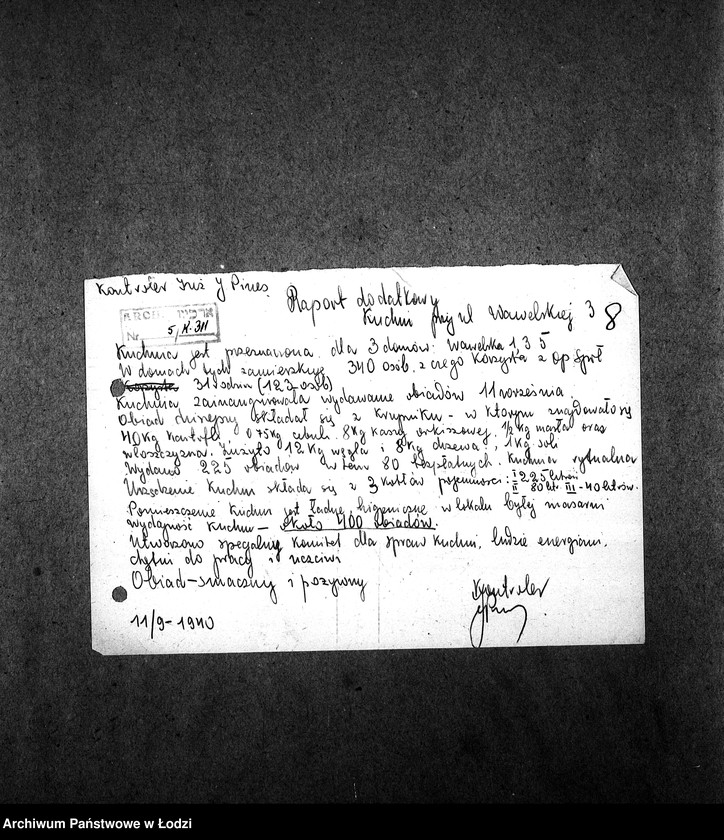 Kontroler Inż J Pines
8
Raport dodatkowy
Kuchni przy ul Wawelskiej 3
ARCH. ארכיון
Nr 5/X-311
Kuchnia jest przeznaczona dla 3 domów: Wawelska 1, 3 5
W domach tych zamieszkuje 340 osób, z czego korzysta z op społ
31 rodzin (123 osób)
Kuchnia zainaugurowała wydawanie obiadów 11 września.
Obiad dzisiejszy składał się z krupniku - w którym znajdowało się
40 Kg kartofli 0,75 Kg cebuli. 8 Kg kaszy orkiszowej, 1/2 Kg masła oraz
włoszczyzna. Zużyto 12 Kg węgla i 8 Kg drzewa, 1 Kg soli
Wydano 225 obiadów w tem 80 bezpłatnych. Kuchnia rytualna
Urządzenie Kuchni składa się z 3 kotłów pojemności: I 225 litrów
II 80 litr III - 40 litrów.
Pomieszczenie Kuchni jest ładne, higieniczne w lokalu byłej masarni
Wydajność Kuchni — około 400 obiadów.
Utworzono specjalny Komitet dla spraw Kuchni, ludzie energiczni,
chętni do pracy i uczciwi
Obiad - smaczny i pożywny
Kontroler
11/9 - 1940
Archiwum Państwowe w Łodzi